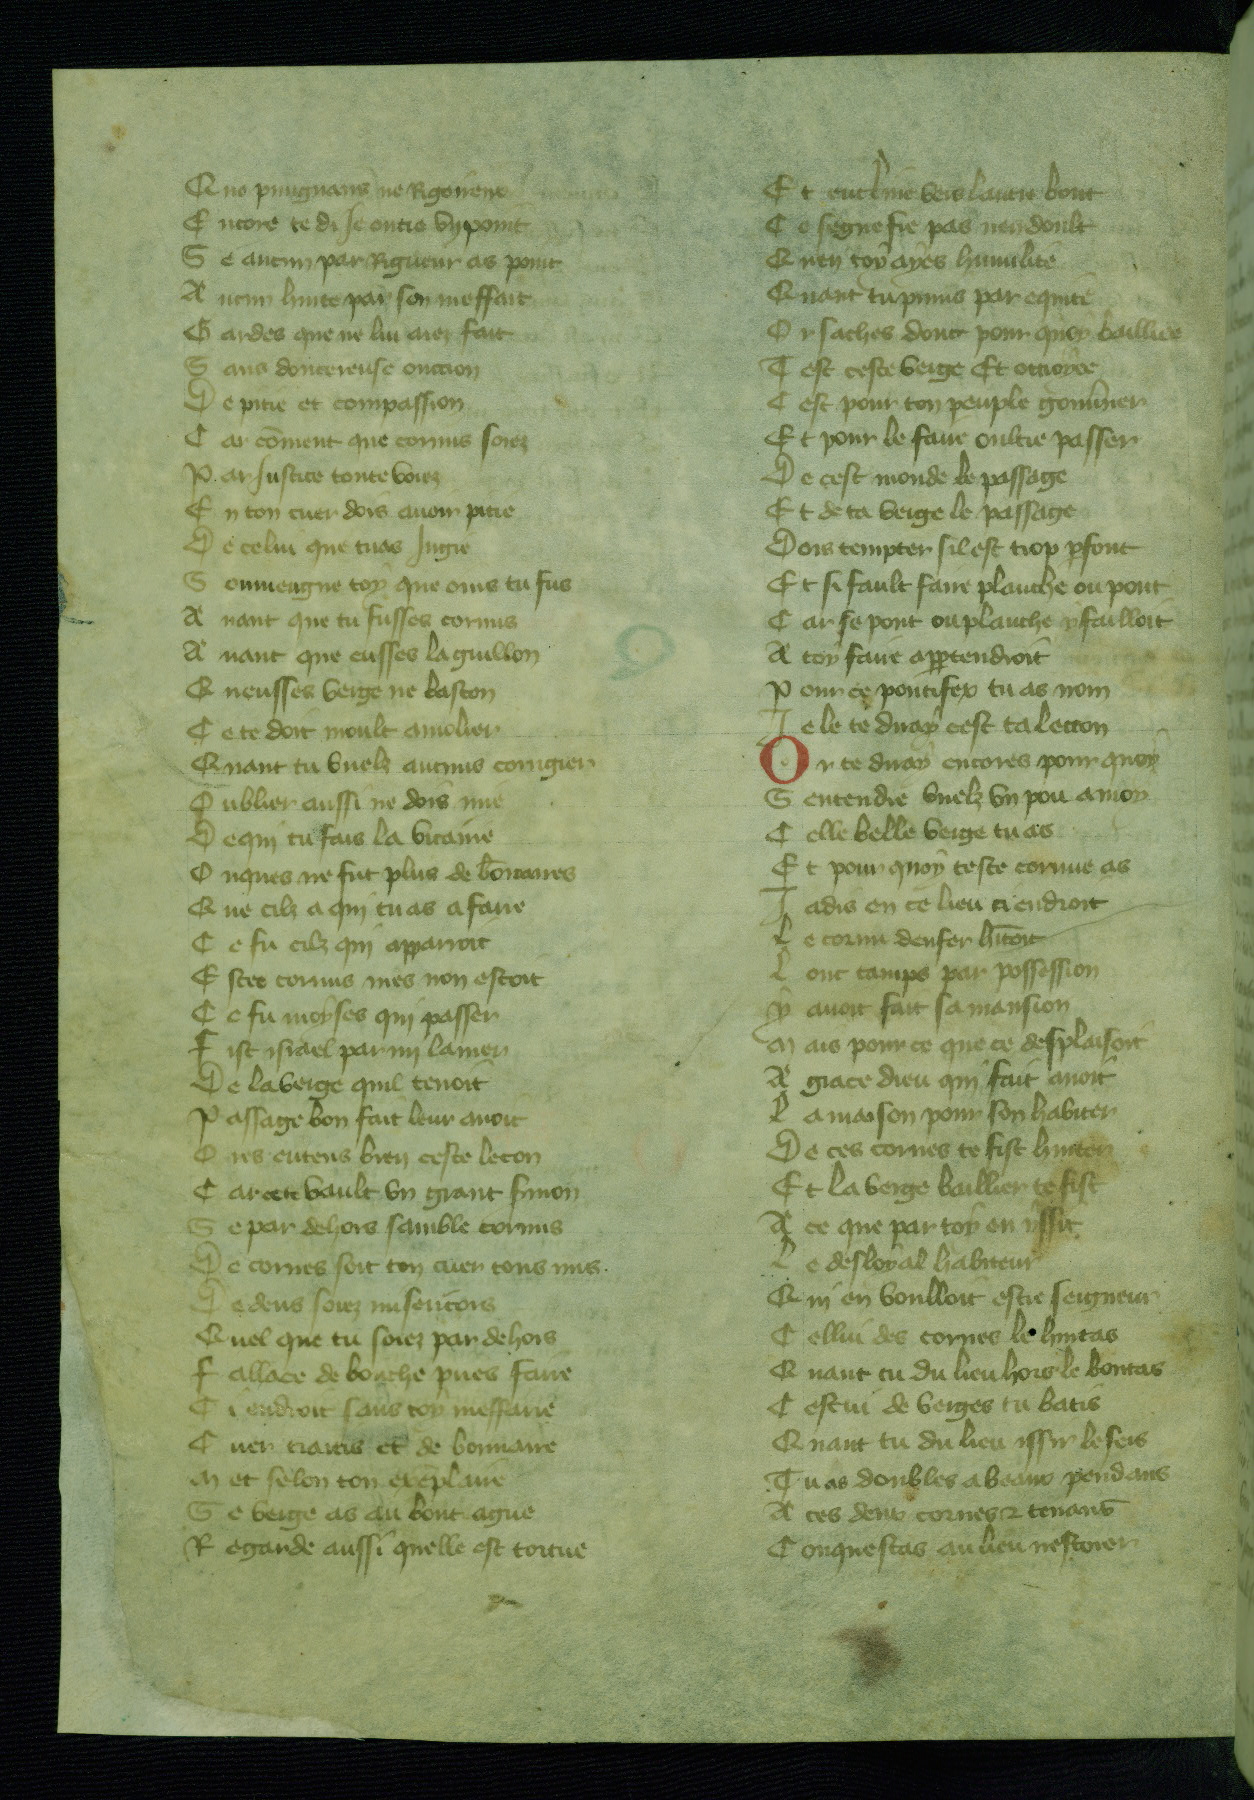 Que pungnans ne Rigoireux
Encore te di Je outre vy point
Se aucun par Rigueur as point
Aucun hurte par son meffait
Gardes que ne lui aiez fait
Sans doucereuse onction
De pitie et compassion
Car coment que cornus soiez
Par Justice toute voiez
En ton cuer dois avoir pitie
De celui que tu as Jugie
Souviengne toy que oins tu fus
Avant que tu fusses cornus
Avant que eusses laguillon
Queusses verge ne baston
Ce te doit moult amolier
Quant tu vuelz aucuns corrigier
Oublier aussi ne dois mie
De qui tu fais la vicairie
Onques ne fut plus de bonaires
Que cilz a qui tu as a faire
Ce fu cilz qui apparroit
Estre cornus mes non estoit
Ce fu moyses qui passer
Fist israel parmi la mer
De la verge quil tenoit
Passage bon fait leur avoit
Ores entens bien ceste lecon
Car cete vault un grant sermon
Se par dehors samble cornus
De cornes soit ton cuer tous nus
Dedens soiez misericors
Quel que tu soiez par dehors
Fallace de bouche pues faire
Ci endroit sans toy meffaire
Cuer traitis et de bonnaire
Met selon ton exeplaire
Se verge as au bout ague
Regarde aussi quelle est tortue
Et encline vers lautre bout
Ce segnefie pas nen doubt
Quen toy ayes humilite
Quant tu punis par equite
Or saches donc pour quoy baillie
Test ceste verge Et ottroyee
Cest pour ton peuple gouverner
Et pour le faire oultre passer
De cest monde le passage
Et de ta verge le passage
Dois tempter sil est trop pfont
Et si fault faire planche ou pont
Car se pont ou planche y failloit
A toy faire appertendroit
Pour ce pontifex tu as nom
Je le te diray cest ta lecon
Or te diray encores pour quoy
Sentendre vuelz un pou a moy
Celle belle verge tu as
Et pour quoy teste cornue as
Jadis en ce lieu ci endroit
Le cornu denfer hitoit
Lonc tamps par possession
Y avoit fait sa mansion
Mais pour ce que ce desplaisoit
A grace dieu qui fait avoit
La maison pour son habiter
De ces cornes te fist hurter
Et la verge baillier te fist
A ce que par toy en yssit
Le desloyal habiteur
Qui en voulloit estre seigneur
Cellui des cornes le hurtas
Quant tu du lieu hors le boutas
Cestui de verges tu batis
Quant tu du lieu issir le feis
Tu as doubles a beaux pendans
A ces deux cornes tenans
Conquestas au lieu nestoier